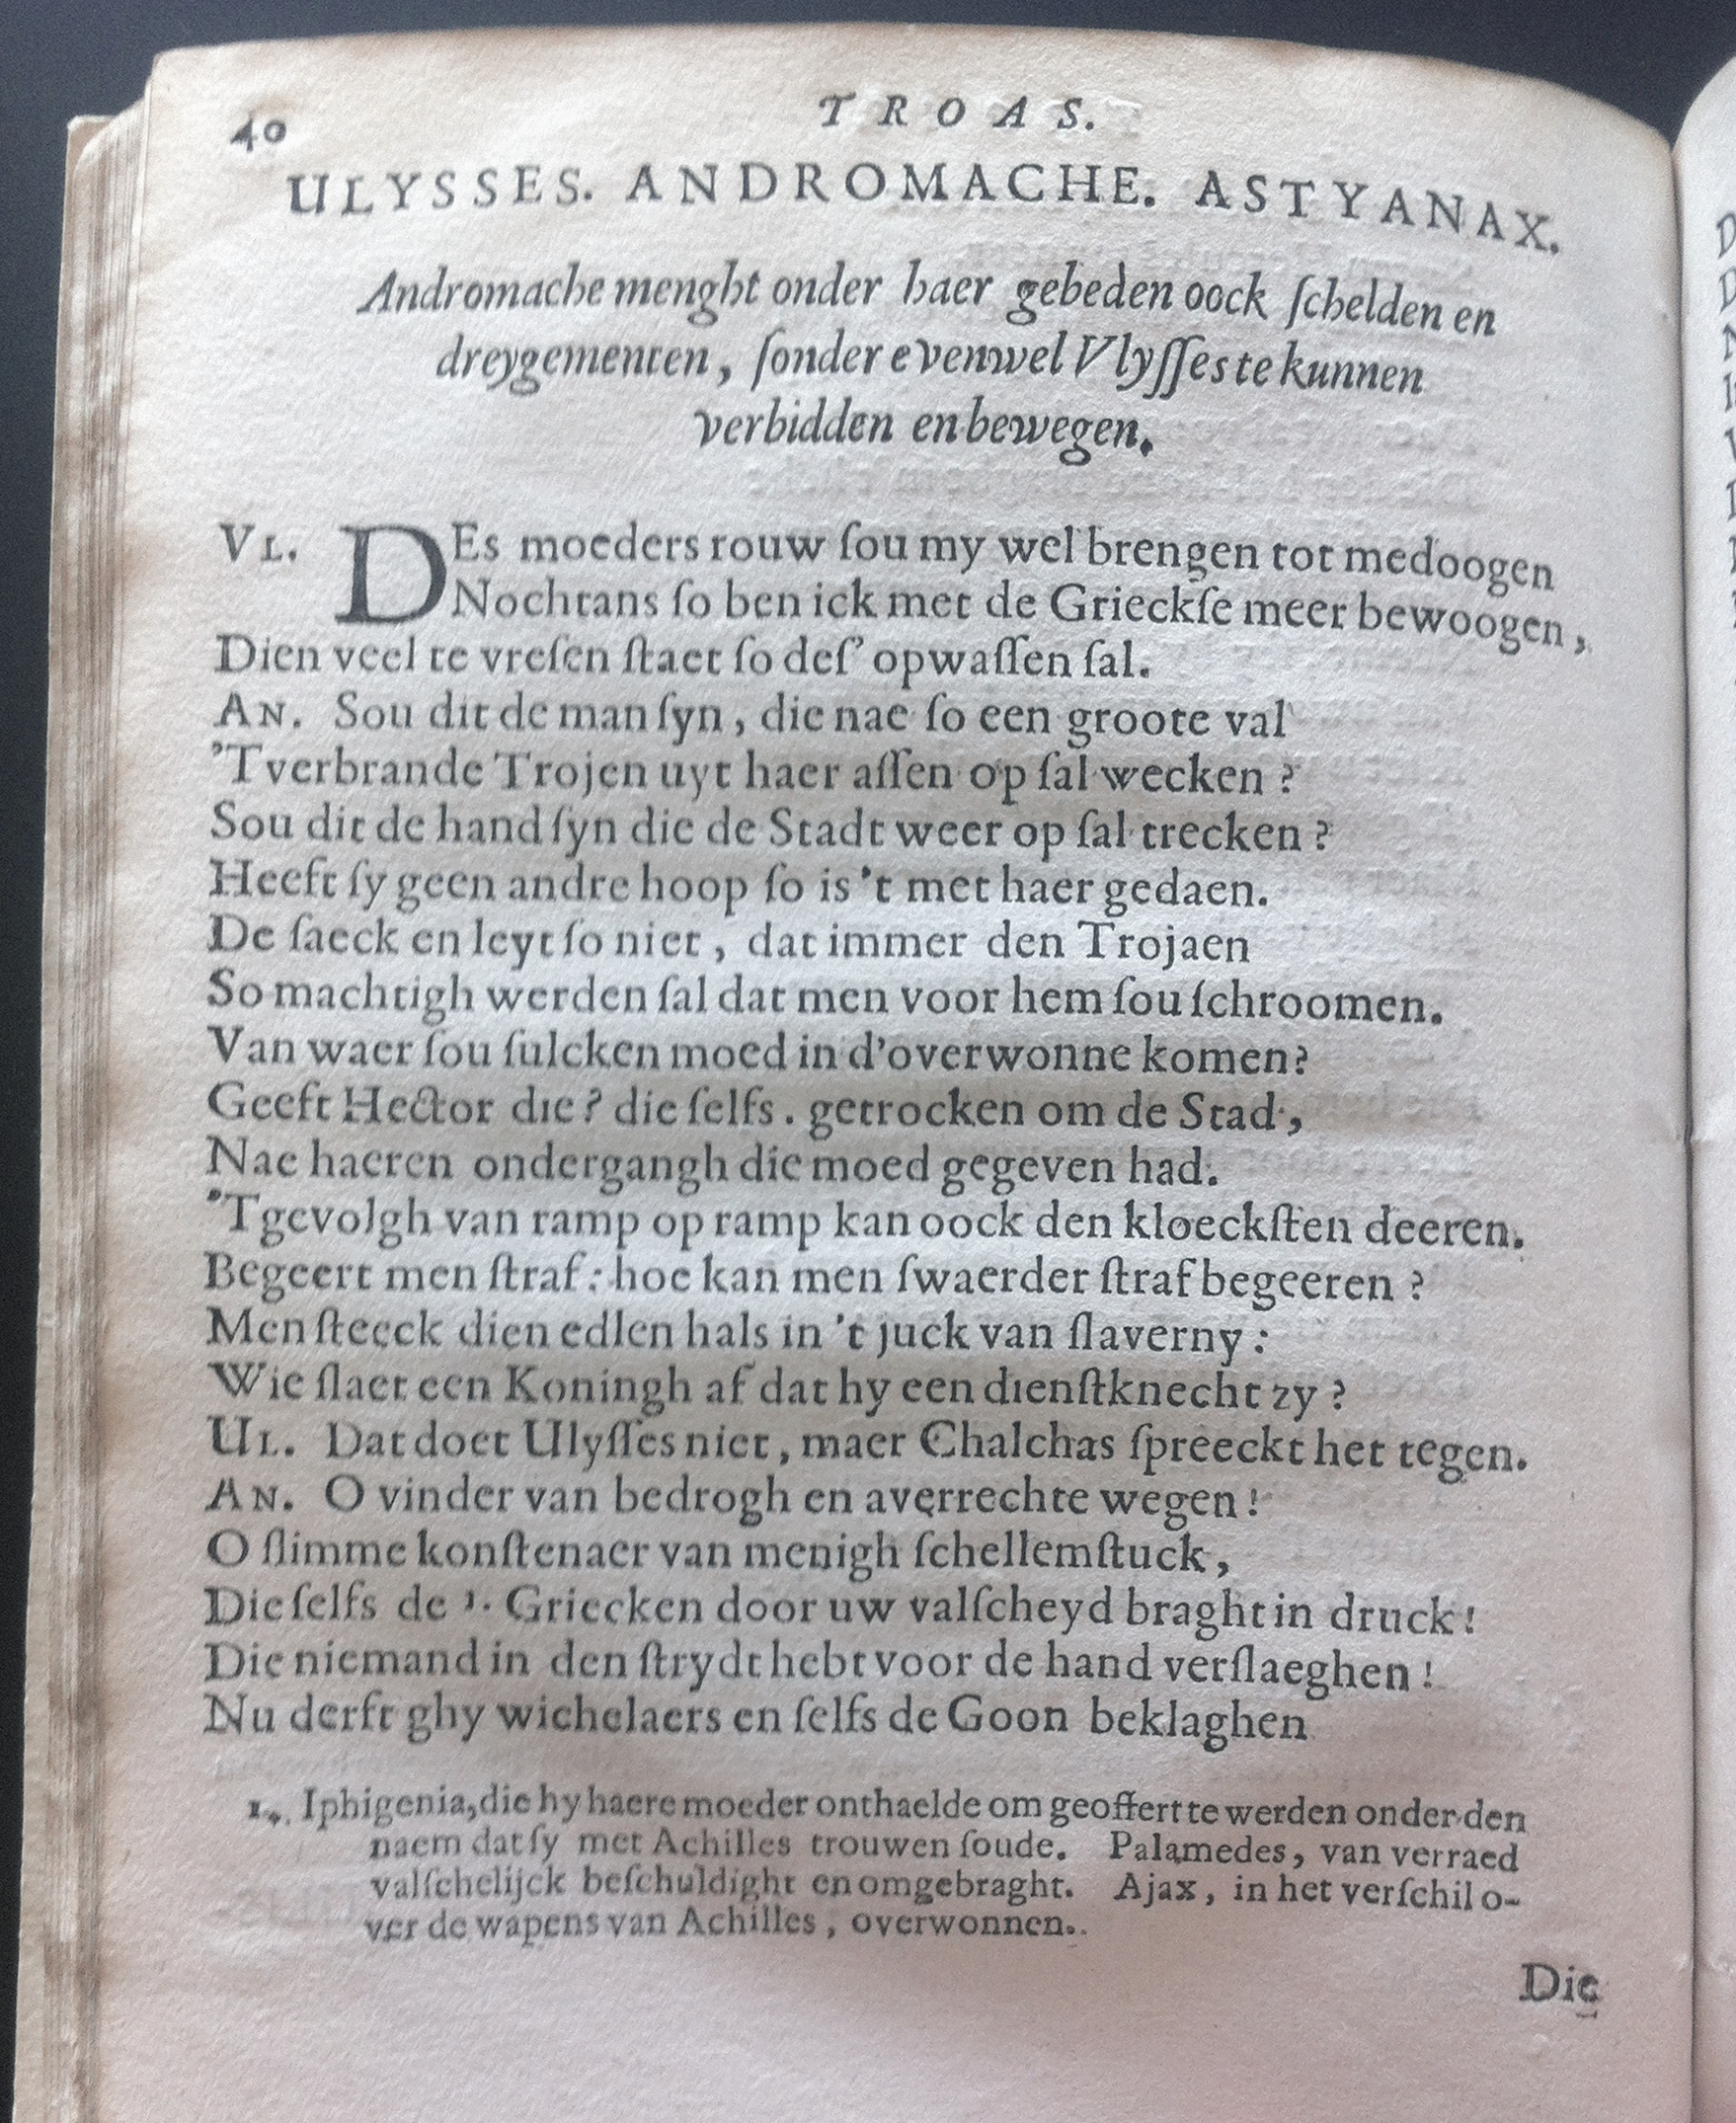 40
TROAS.
ULYSSES. ANDROMACHE. ASTYANAX.
Andromache menght onder haer gebeden oock ſchelden en
dreygementen, ſonder evenwel Vlyſſes te kunnen
verbidden en bewegen.
VL. DEs moeders rouw ſou my wel brengen tot medoogen
Nochtans ſo ben ick met de Grieckſe meer bewoogen,
Dien veel te vreſen ſtaet ſo deſ' opwaſſen ſal.
AN. Sou dit de man ſyn, die nae ſo een groote val
'Tverbrande Trojen uyt haer aſſen op ſal wecken?
Sou dit de hand ſyn die de Stadt weer op ſal trecken?
Heeft ſy geen andre hoop ſo is 't met haer gedaen.
De ſaeck en leyt ſo niet, dat immer den Trojaen
So machtigh werden ſal dat men voor hem ſou ſchroomen.
Van waer ſou ſulcken moed in d'overwonne komen?
Geeft Hector die? die ſelfs. getrocken om de Stad,
Nae haeren ondergangh die moed gegeven had.
'Tgevolgh van ramp op ramp kan oock den kloeckſten deeren.
Begeert men ſtraf: hoe kan men ſwaerder ſtraf begeeren?
Men ſteeck dien edlen hals in 't juck van ſlaverny:
Wie ſlaet een Koningh af dat hy een dienſtknecht zy?
UL. Dat doet Ulyſſes niet, maer Chalchas ſpreeckt het tegen.
AN. O vinder van bedrogh en averrechte wegen!
O ſlimme konſtenaer van menigh ſchellemſtuck,
Die ſelfs de 1. Griecken door uw valſcheyd braght in druck!
Die niemand in den ſtrydt hebt voor de hand verſlaeghen!
Nu derft ghy wichelaers en ſelfs de Goon beklaghen
1. Iphigenia, die hy haere moeder onthaelde om geoffert te werden onder den
naem dat ſy met Achilles trouwen ſoude. Palamedes, van verraed
valſchelijck beſchuldight en omgebraght. Ajax, in het verſchil o-
ver de wapens van Achilles, overwonnen.
Die